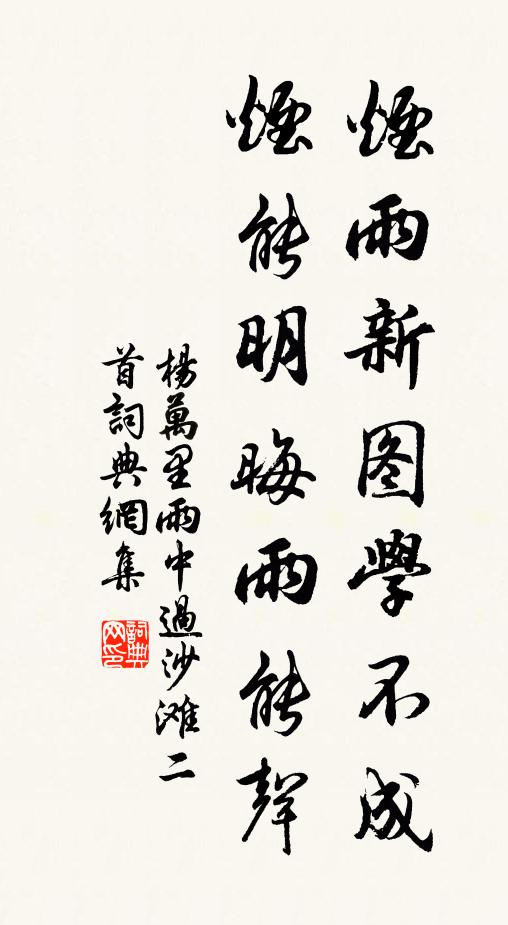 煙雨新图學不成
煙能明晦雨能聲
楊萬里雨中過沙滩二
首詞典網集
詞典
网印